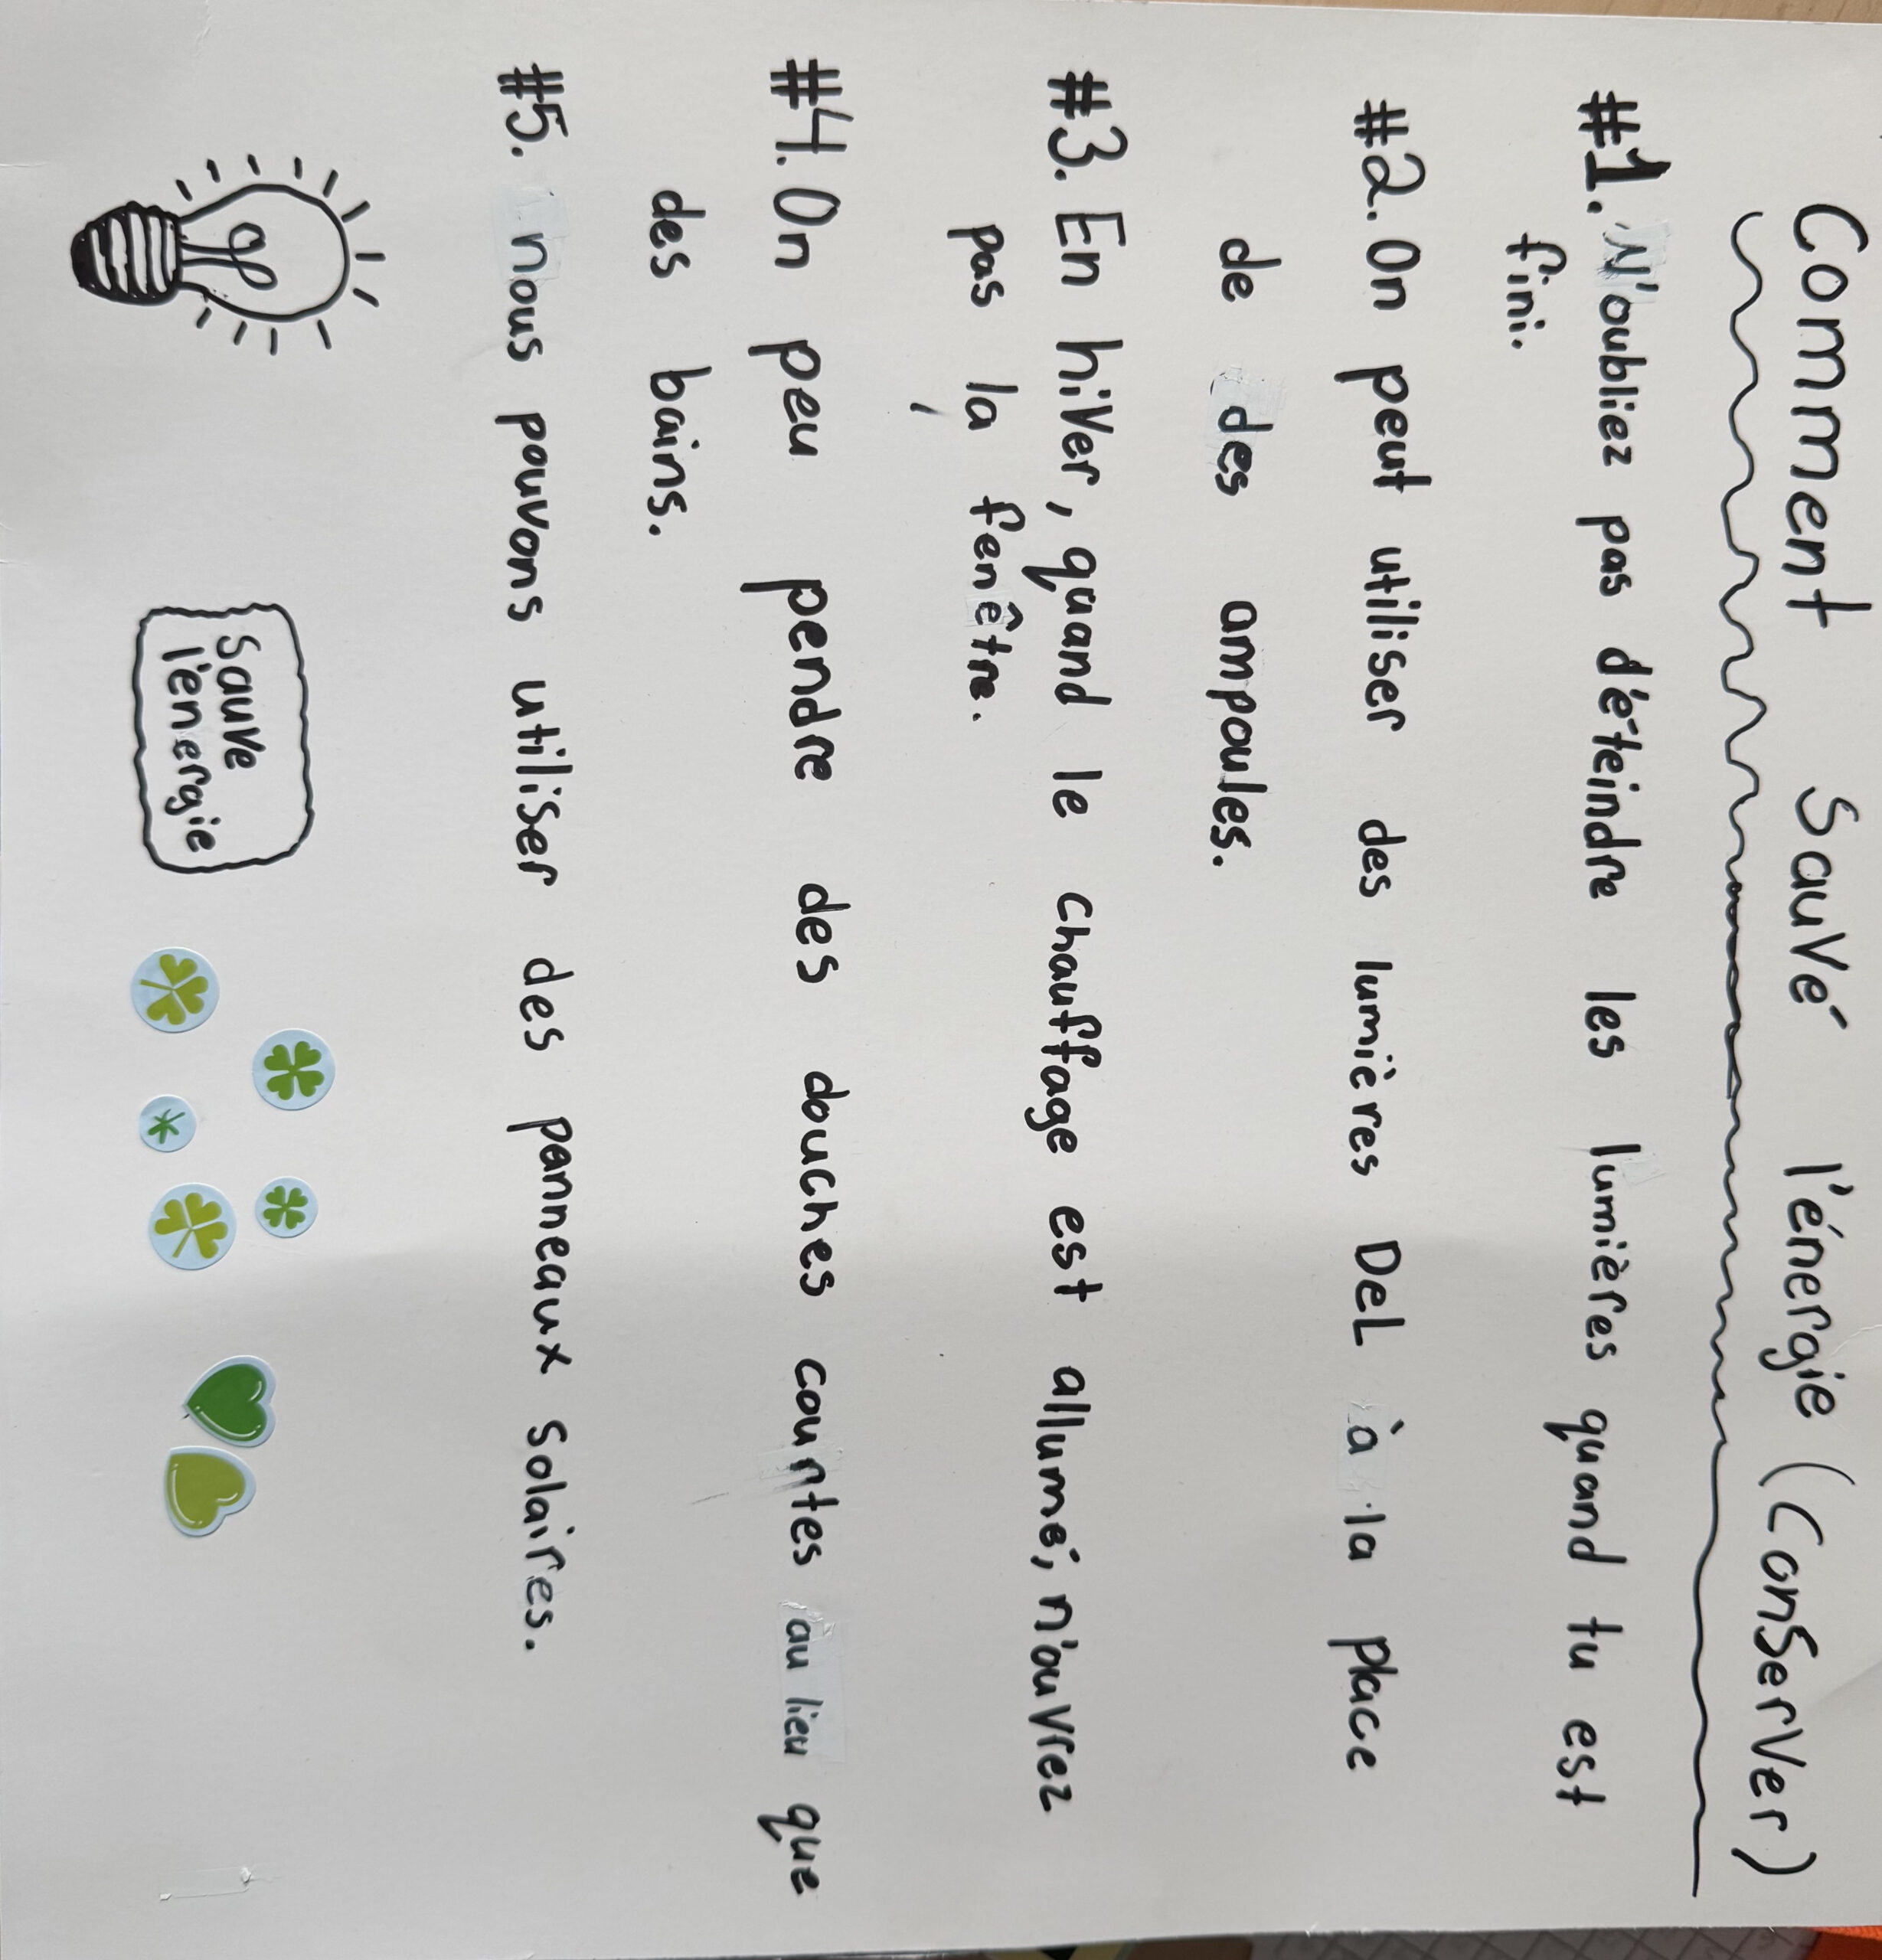 Comment sauvé l'énergie (conserver)
#1. N'oubliez pas d'éteindre les lumières quand tu est
fini.
#2. On peut utiliser des lumières DeL à la place
de des ampoules.
#3. En hiver, quand le chauffage est allumé, n'ouvrez
pas la fenêtre.
#4. On peu pendre des douches courtes au lieu que
des bains.
#5. nous pouvons utiliser des panneaux solaires.
Sauve
l'énergie